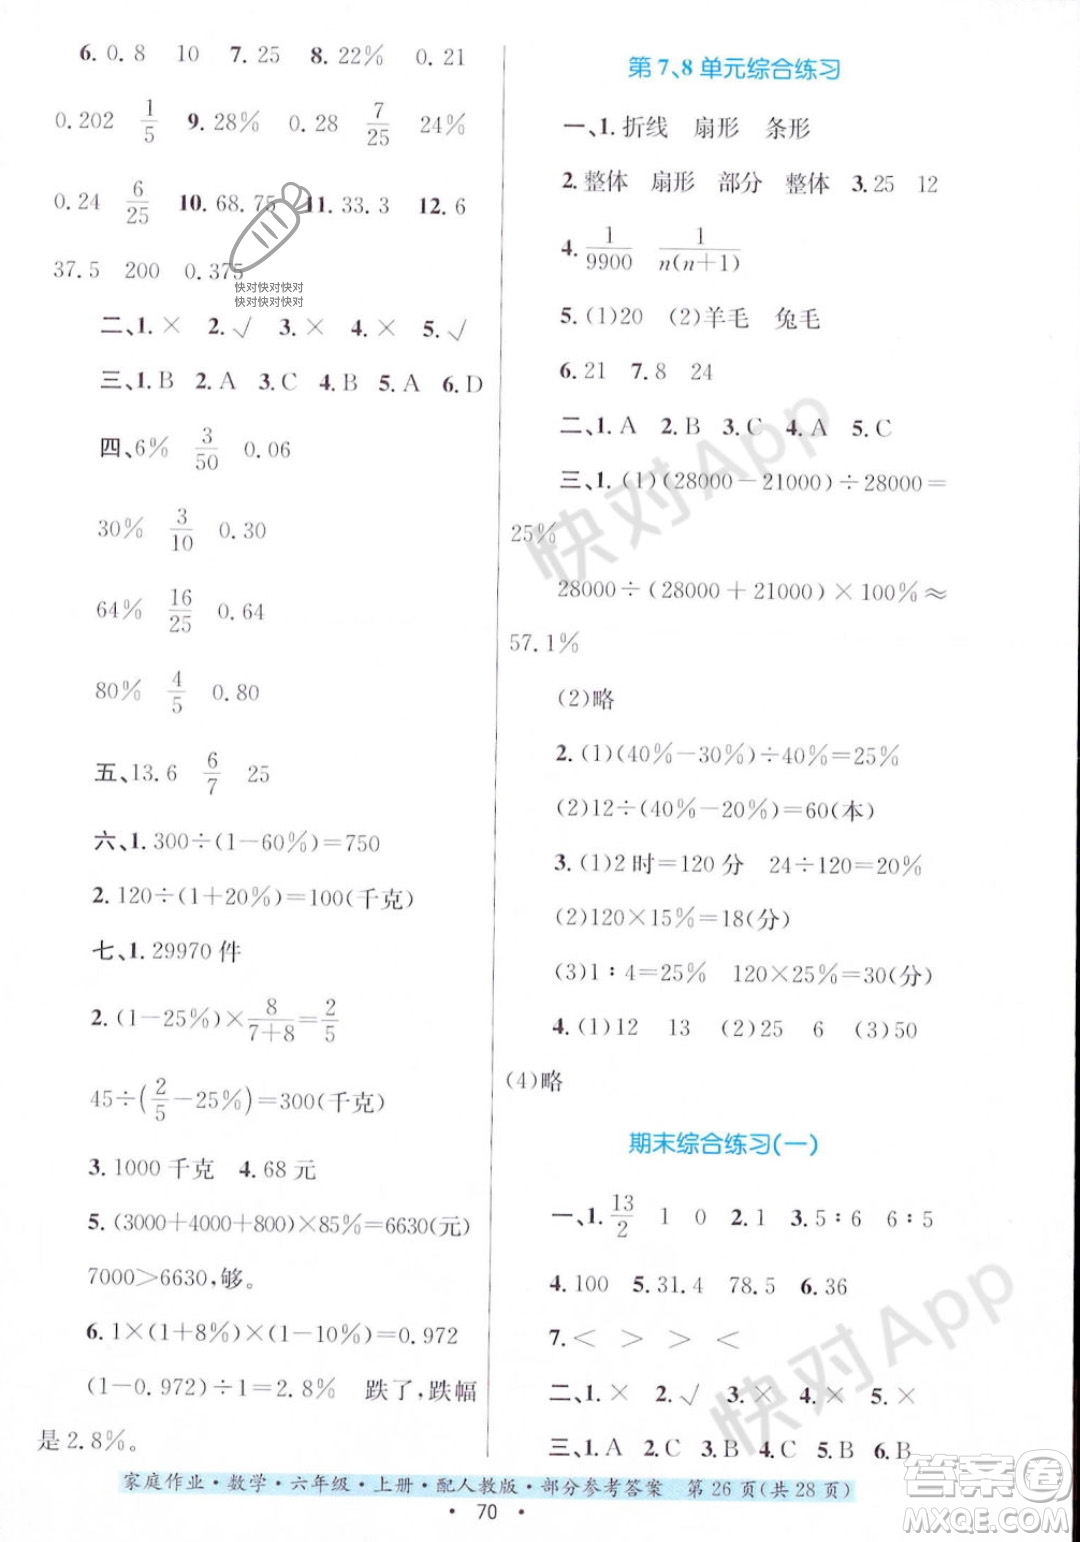 6. 0.8 10 7. 25 8. 22% 0.21
0.202 1/5 9. 28% 0.28 7/25 24%
0.24 6/25 10. 68.75 11. 33.3 12. 6
37.5 200 0.375
快对快对快对
快对快对快对
二、1. × 2. √ 3. × 4. × 5. √
三、1. B 2. A 3. C 4. B 5. A 6. D
四、6% 3/50 0.06
30% 3/10 0.30
64% 16/25 0.64
80% 4/5 0.80
五、13.6 6/7 25
六、1. 300÷(1−60%)=750
2. 120÷(1+20%)=100(千克)
七、1. 29970 件
2. (1−25%)×8/(7+8)=2/5
45÷(2/5−25%)=300(千克)
3. 1000 千克 4. 68 元
5. (3000+4000+800)×85%=6630(元)
7000>6630,够。
6. 1×(1+8%)×(1−10%)=0.972
(1−0.972)÷1=2.8% 跌了,跌幅
是 2.8%。
第 7、8 单元综合练习
一、1. 折线 扇形 条形
2. 整体 扇形 部分 整体 3. 25 12
4. 1/9900 1/n(n+1)
5. (1)20 (2)羊毛 兔毛
6. 21 7. 8 24
二、1. A 2. B 3. C 4. A 5. C
三、1. (1)(28000−21000)÷28000=
25%
28000÷(28000+21000)×100%≈
57.1%
(2)略
2. (1)(40%−30%)÷40%=25%
(2)12÷(40%−20%)=60(本)
3. (1)2 时=120 分 24÷120=20%
(2)120×15%=18(分)
(3)1∶4=25% 120×25%=30(分)
4. (1)12 13 (2)25 6 (3)50
(4)略
期末综合练习(一)
一、1. 13/2 1 0 2. 1 3. 5∶6 6∶5
4. 100 5. 31.4 78.5 6. 36
7. < > > <
二、1. × 2. √ 3. × 4. × 5. ×
三、1. B 2. A 3. C 4. C
家庭作业·数学·六年级·上册·配人教版·部分参考答案 第 26 页(共 28 页)
· 70 ·
快对App
快对App
答案圈
MXQE.COM